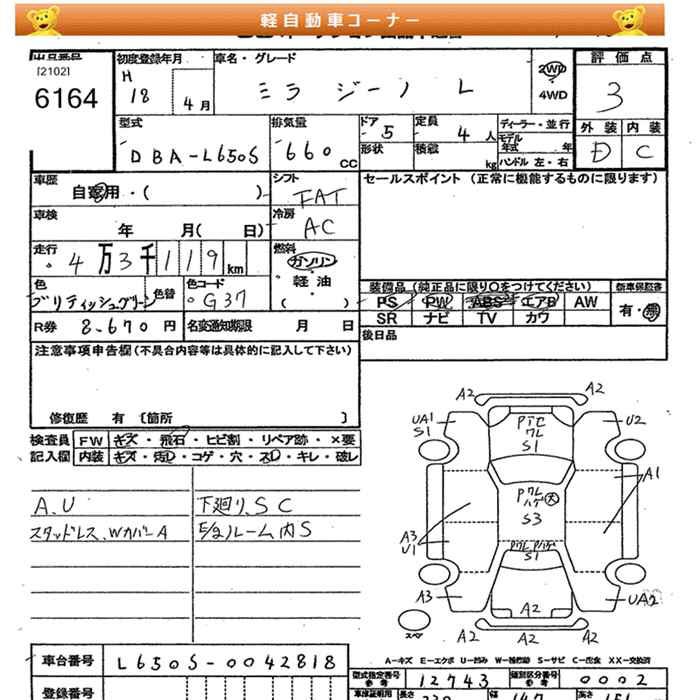 軽自動車コーナー
出品番号 初度登録年月 車名・グレード 2WD 評価点
[2102] H
6164 18 4月 ミラ ジーノ L 4WD 3
型式 排気量 ドア 5 定員 4人 ディーラー・並行 外装 内装
DBA-L650S 660cc 形状 積載 kg モデル年式 年 D C
ハンドル 左・右
車歴 シフト セールスポイント (正常に機能するものに限ります)
自家用・( ) FAT
車検 冷房
年 月( 日) AC
走行 燃料
4万3千119km ガソリン
色 色替 色コード ・軽油 装備品 (純正品に限り○をつけてください) 新車保証書
ブリティッシュグリーン G37 ( ) PS PW ABS エアB AW 有・無
R券 8,670円 名変通知期限 月 日 SR ナビ TV カワ
注意事項申告欄(不具合内容等は具体的に記入して下さい) 後日品
修復歴 有 〔箇所 〕
検査員 FW キズ・飛石・ヒビ割・リペア跡・×要
記入欄 内装 キズ・汚れ・コゲ・穴・スレ・キレ・破レ
A.U 下廻り、SC
スタッドレス、WカバーA E/gルーム内S
A2 A2
UA1 U2
S1
S1
A1
S3
A3
U1
S1
A3 A2 UA2
A2 A2 A2
スペア
A-キズ E-エクボ U-凹み W-補修跡 S-サビ C-腐食 XX-交換済
車台番号 L650S-0042818 型式指定番号 12743 類別区分番号 0002
参考 参考
登録番号 車検証明用 長さ 幅 147 高さ 151